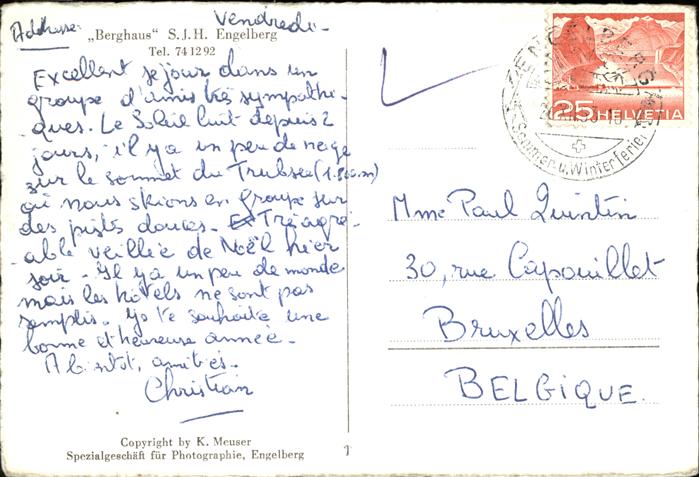 Addresse: Vendredi.
„Berghaus" S.J.H. Engelberg
Tel. 74 12 92
Excellent séjour dans un
groupe d'amis très sympathi-
ques. Le Soleil luit depuis 2
jours, il y a un peu de neige
sur le sommet du Trubsee (1.800 m)
où nous skions en groupe sur
des pistes douces. Très agré-
able veillée de Noël hier
soir. Il y a un peu de monde
mais les hôtels ne sont pas
remplis. Je te souhaite une
bonne et heureuse année.
A bientôt, amitiés.
Christian
Copyright by K. Meuser
Spezialgeschäft für Photographie, Engelberg
25 HELVETIA
ENGELBERG
Sommer u. Winterferien
Mme Paul Quintin
30, rue Capouillet
Bruxelles
BELGIQUE.